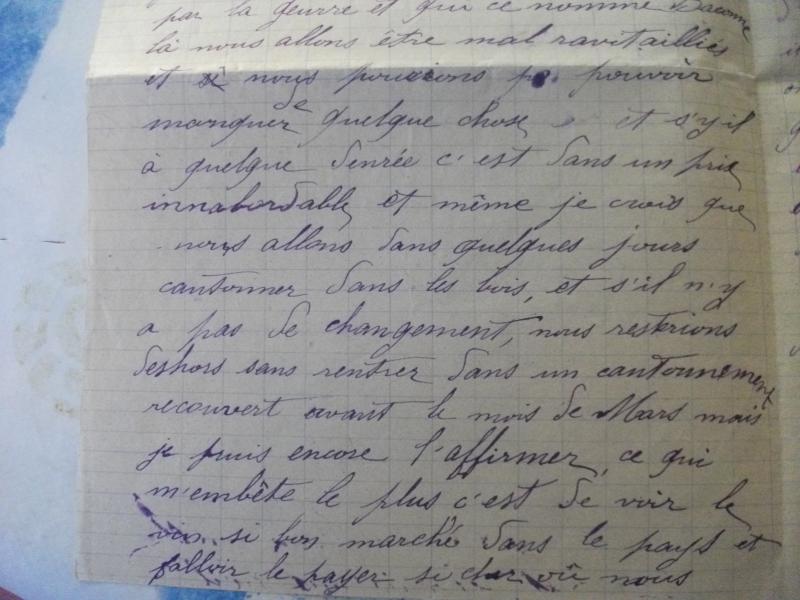 par la geurre et qui ce nomme Baconne
là nous allons être mal ravitailliés
et si nous pouvions pouvoir
manquer de quelque chose et s'y il
à quelque denrée c'est dans un prix
innabordable et même je crois que
nous allons dans quelques jours
cantonner dans les bois, et s'il n'y
a pas de changement, nous resterions
deshors sans rentrer dans un cantonnement
recouvert avant le mois de Mars mais
je puis encore l'affirmer, ce qui
m'embête le plus c'est de voir le
vin si bon marché dans le pays et
falloir le payer si cher où nous